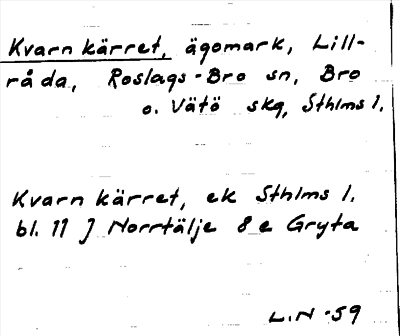 Kvarnkärret, ägomark, Lill-
råda, Roslags-Bro sn, Bro
o. Vätö skg, Sthlms l.
Kvarnkärret, ek Sthlms l.
bl. 11 J Norrtälje 8e Gryta
L.N -59